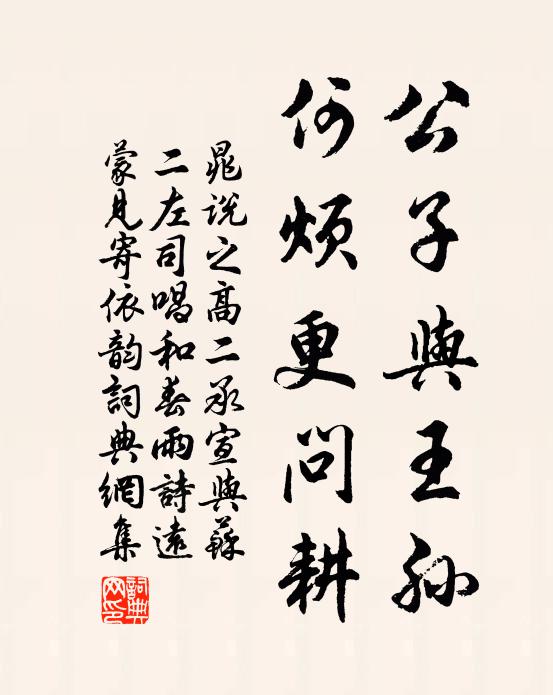 公子與王孫
何煩更問耕
晁說之高二承宣與蘇
二左司唱和春雨詩遠
蒙見寄依韵詞典網集
詞典網印